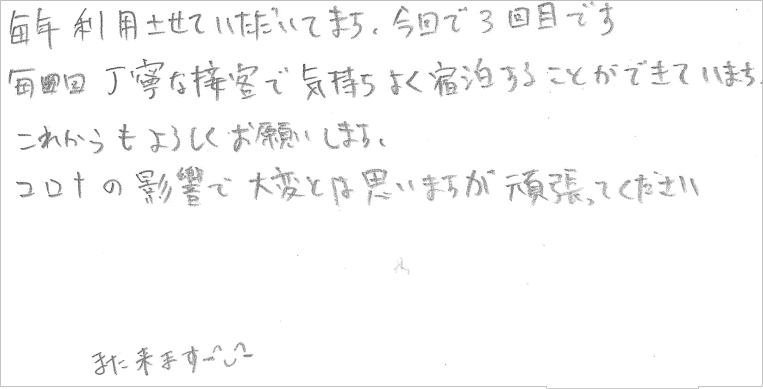 毎年利用させていただいてます。今回で3回目です
毎回丁寧な接客で気持ちよく宿泊することができています。
これからもよろしくお願いします。
コロナの影響で大変とは思いますが頑張ってください
また来ます^◡^